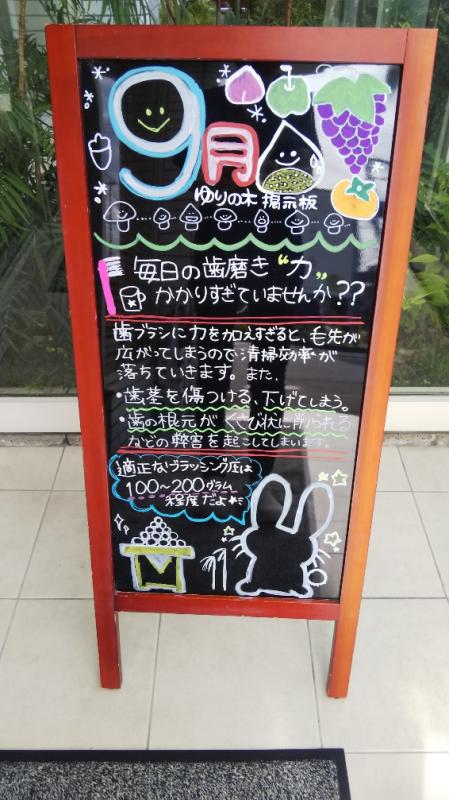 9月
ゆりの木 掲示板
毎日の歯磨き“力”
かかりすぎていませんか??
歯ブラシに力を加えすぎると、毛先が
広がってしまうので清掃効率が
落ちていきます。また、
・歯茎を傷つける、下げてしまう。
・歯の根元がくさび状に削られる
などの弊害を起こしてしまいます。
適正なブラッシング圧は
100〜200グラム
程度だよ